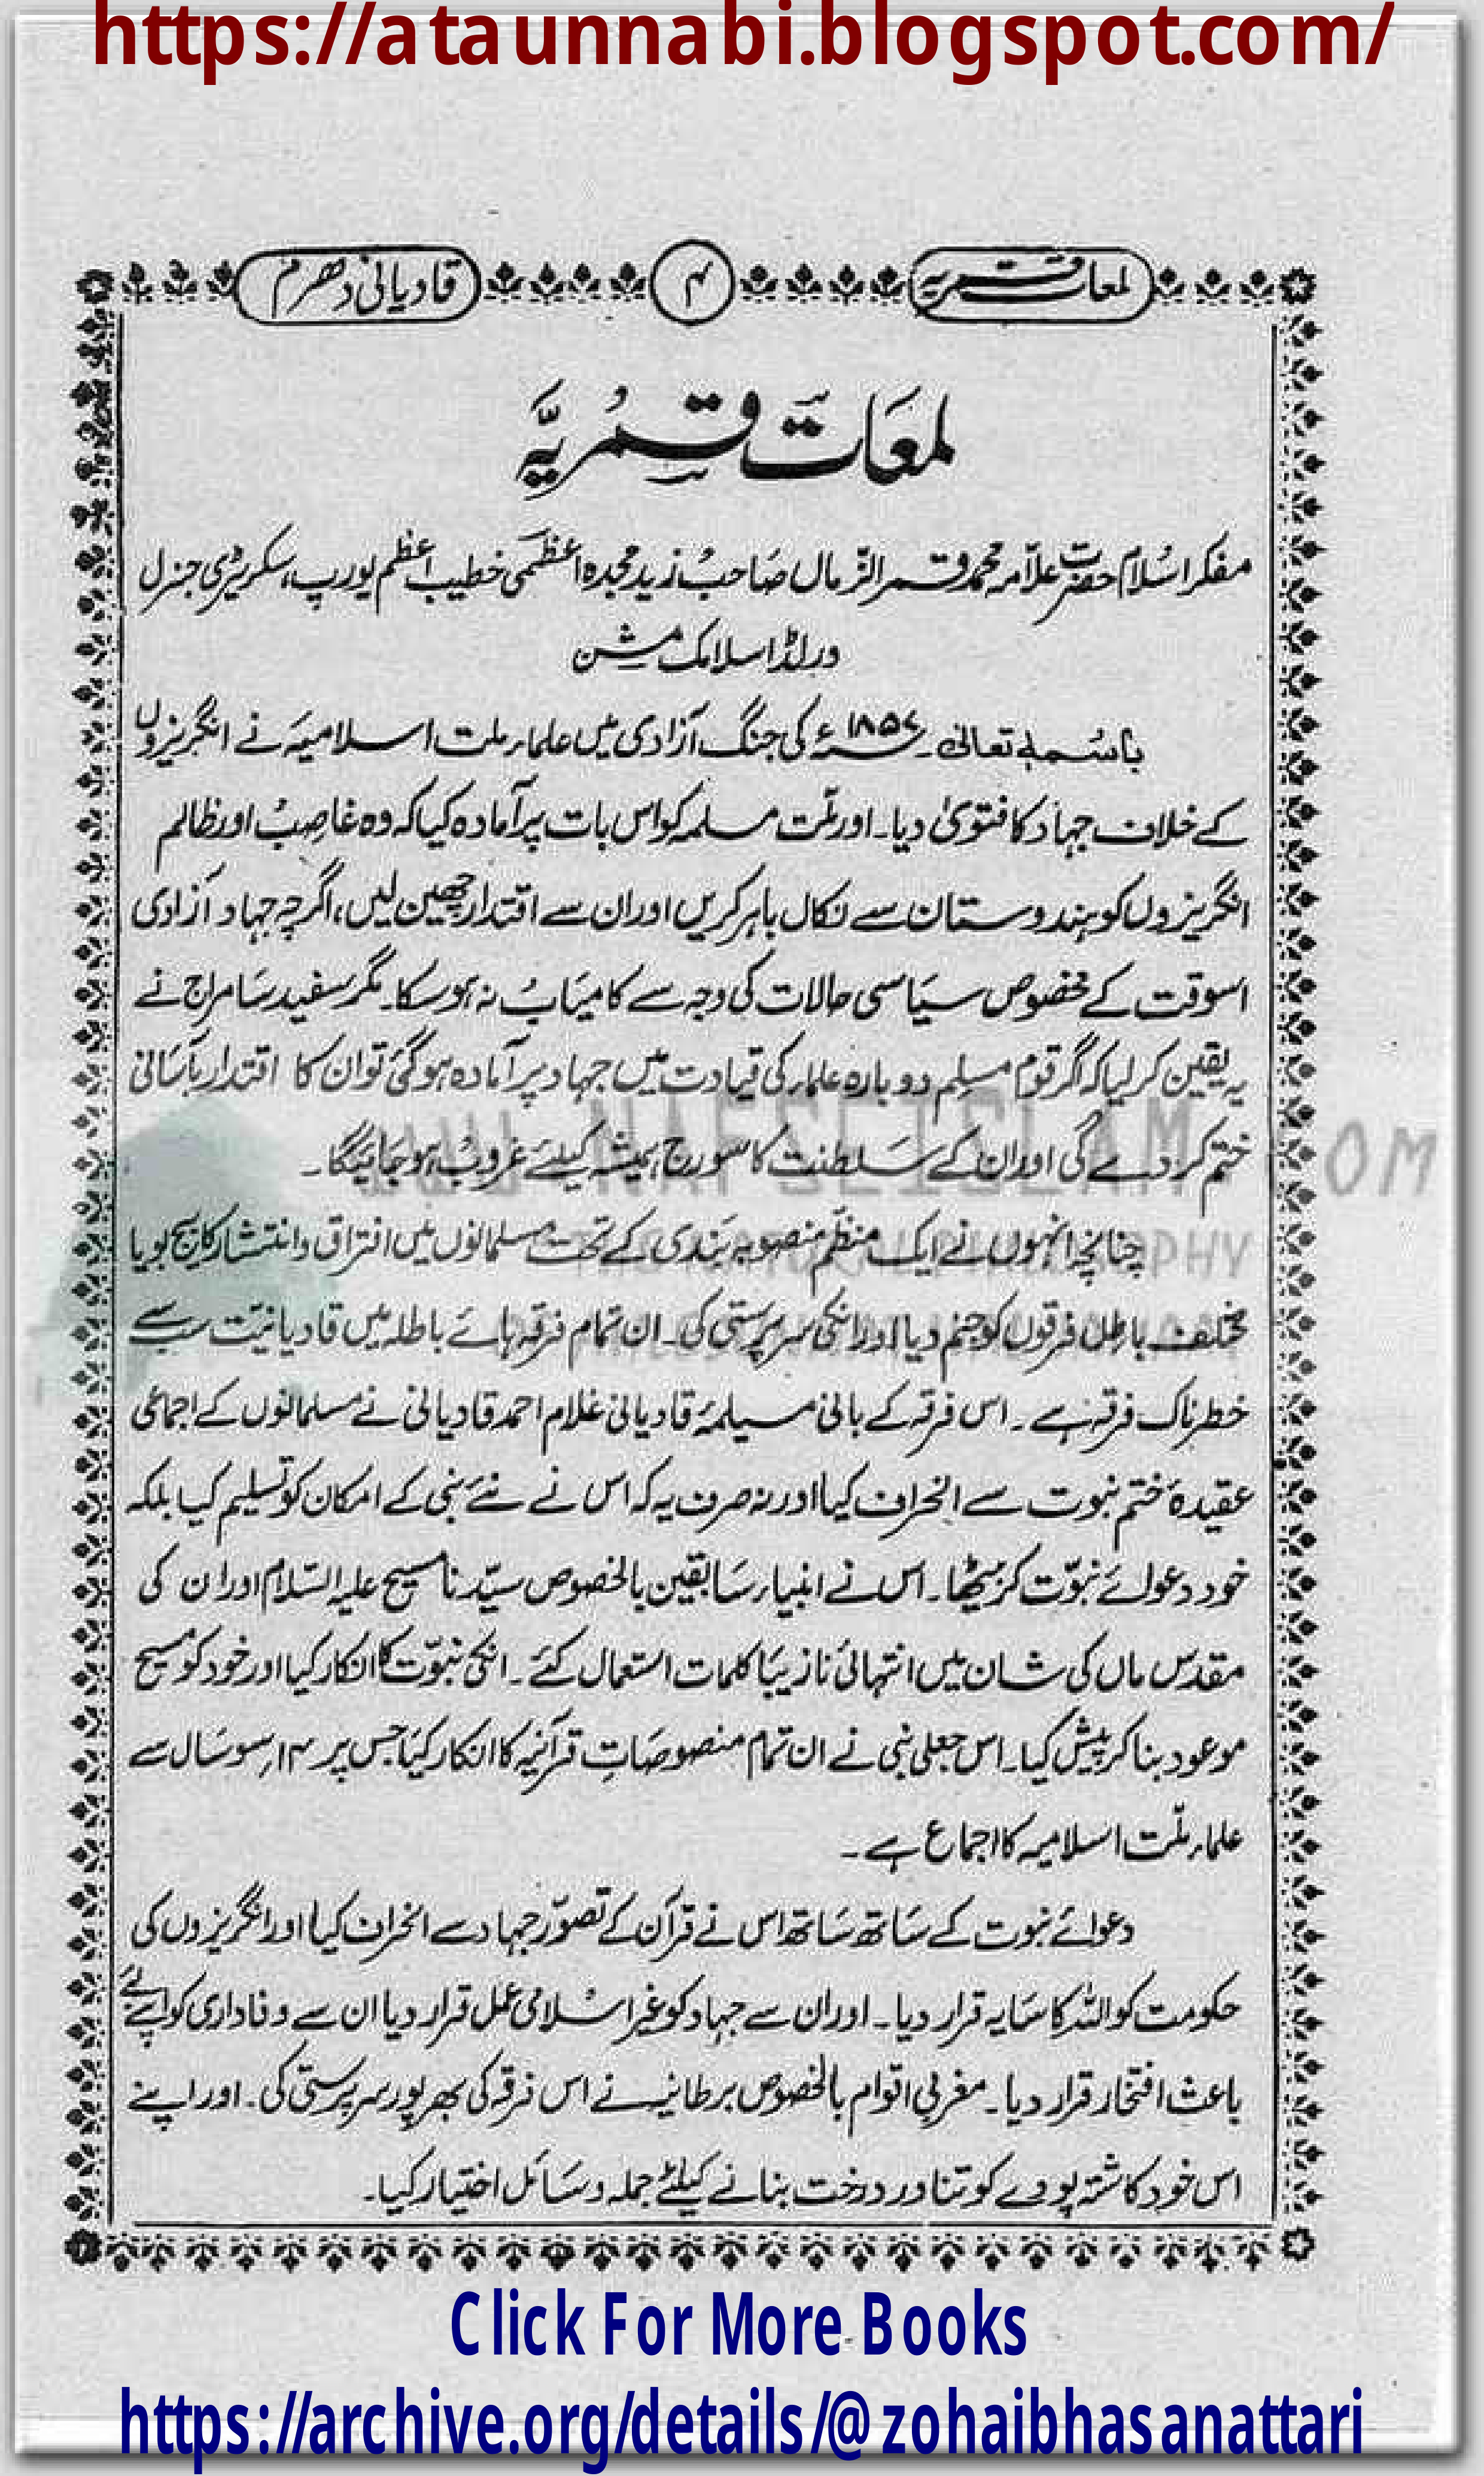 https://ataunnabi.blogspot.com/
لمعات قمریہ
۴
قادیانی دھرم
لمعَات قمریَّہ
مفکر اسلام حضرت علاّمہ محمد قمر الزّماں صاحب زید مجدہ اعظمی خطیب اعظم یورپ، سکریٹری جنرل
ورلڈ اسلامک مشن
باسمہ تعالیٰ۔ ۱۸۵۷ء کی جنگ آزادی میں علماء ملت اسلامیہ نے انگریزوں
کے خلاف جہاد کا فتویٰ دیا۔ اور ملّت مسلمہ کو اس بات پر آمادہ کیا کہ وہ غاصب اور ظالم
انگریزوں کو ہندوستان سے نکال باہر کریں اور ان سے اقتدار چھین لیں، اگرچہ جہاد آزادی
اسوقت کے مخصوص سیاسی حالات کی وجہ سے کامیاب نہ ہو سکا۔ مگر سفید سامراج نے
یہ یقین کر لیا کہ اگر قوم مسلم دوبارہ علماء کی قیادت میں جہاد پر آمادہ ہو گئی تو ان کا اقتدار بآسانی
ختم کر دے گی اور ان کے سلطنت کا سورج ہمیشہ کیلئے غروب ہو جائیگا۔
WWW.NAFSEISLAM.COM
چنانچہ انہوں نے ایک منظم منصوبہ بندی کے تحت مسلمانوں میں افتراق و انتشار کا بیج بویا
مختلف باطل فرقوں کو جنم دیا اور انکی سرپرستی کی۔ ان تمام فرقہائے باطلہ میں قادیانیت سب سے
خطرناک فرقہ ہے۔ اس فرقہ کے بانی مسیلمۂ قادیانی غلام احمد قادیانی نے مسلمانوں کے اجماعی
عقیدۂ ختم نبوت سے انحراف کیا اور نہ صرف یہ کہ اس نے نئے نبی کے امکان کو تسلیم کیا بلکہ
خود دعوائے نبوّت کر بیٹھا۔ اس نے انبیاء سابقین بالخصوص سیّدنا مسیح علیہ السّلام اور ان کی
مقدس ماں کی شان میں انتہائی نازیبا کلمات استعمال کئے۔ انکی نبوّت کا انکار کیا اور خود کو مسیح
موعود بنا کر پیش کیا۔ اس جعلی نبی نے ان تمام منصوصاتِ قرآنیہ کا انکار کیا جس پر ۱۴ سو سال سے
علماء ملّت اسلامیہ کا اجماع ہے۔
دعوائے نبوت کے ساتھ ساتھ اس نے قرآن کے تصوّر جہاد سے انحراف کیا اور انگریزوں کی
حکومت کو اللہ کا سایہ قرار دیا۔ اور ان سے جہاد کو غیر اسلامی عمل قرار دیا ان سے وفاداری کو اپنے لئے
باعث افتخار قرار دیا۔ مغربی اقوام بالخصوص برطانیہ نے اس فرقہ کی بھرپور سرپرستی کی۔ اور اپنے
اس خود کاشتہ پودے کو تناور درخت بنانے کیلئے جملہ وسائل اختیار کیا۔
Click For More Books
https://archive.org/details/@zohaibhasanattari